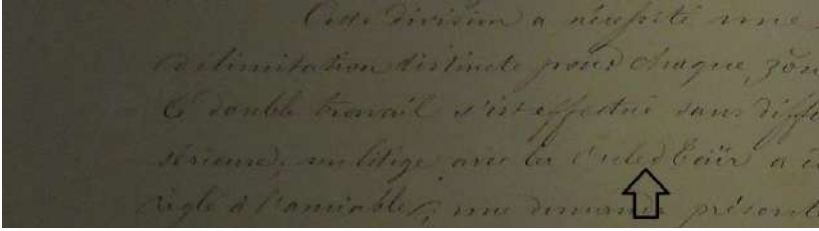 Cette division a nécessité une
délimitation distincte pour chaque zôn
Ce double travail s'est effectué sans diffi
sérieuse, un litige avec les Ouled Eaïr a é
réglé à l'amiable, une demande présent